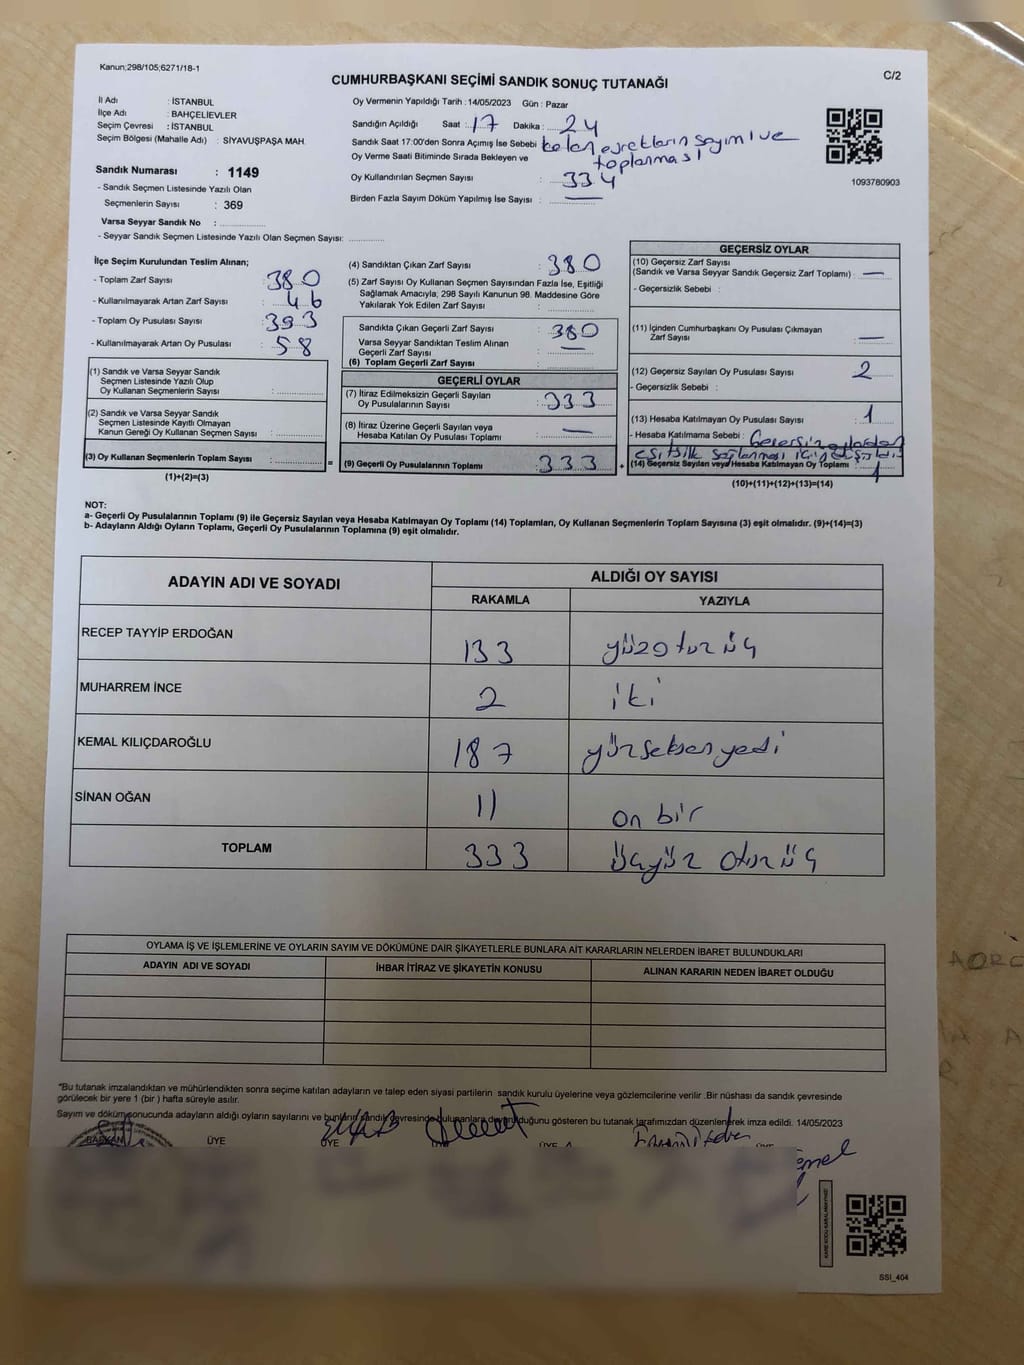 Kanun;298/105;6271/18-1
CUMHURBAŞKANI SEÇİMİ SANDIK SONUÇ TUTANAĞI
C/2
İl Adı : İSTANBUL
İlçe Adı : BAHÇELİEVLER
Seçim Çevresi : İSTANBUL
Seçim Bölgesi (Mahalle Adı) : SİYAVUŞPAŞA MAH.
Sandık Numarası : 1149
- Sandık Seçmen Listesinde Yazılı Olan
Seçmenlerin Sayısı : 369
Varsa Seyyar Sandık No :
- Seyyar Sandık Seçmen Listesinde Yazılı Olan Seçmen Sayısı:
Oy Vermenin Yapıldığı Tarih : 14/05/2023 Gün : Pazar
Sandığın Açıldığı Saat : 17 Dakika : 24
Sandık Saat 17:00'den Sonra Açımış İse Sebebi kalan evrakların sayımı ve
toplanması
Oy Verme Saati Bitiminde Sırada Bekleyen ve
Oy Kullandırılan Seçmen Sayısı : 334
Birden Fazla Sayım Döküm Yapılmış İse Sayısı : —
1093780903
İlçe Seçim Kurulundan Teslim Alınan;
- Toplam Zarf Sayısı : 380
- Kullanılmayarak Artan Zarf Sayısı : 46
- Toplam Oy Pusulası Sayısı : 393
- Kullanılmayarak Artan Oy Pusulası : 58
(1) Sandık ve Varsa Seyyar Sandık
Seçmen Listesinde Yazılı Olup
Oy Kullanan Seçmenlerin Sayısı :
(2) Sandık ve Varsa Seyyar Sandık
Seçmen Listesinde Kayıtlı Olmayan
Kanun Gereği Oy Kullanan Seçmen Sayısı :
(3) Oy Kullanan Seçmenlerin Toplam Sayısı :
(1)+(2)=(3)
(4) Sandıktan Çıkan Zarf Sayısı : 380
(5) Zarf Sayısı Oy Kullanan Seçmen Sayısından Fazla İse, Eşitliği
Sağlamak Amacıyla; 298 Sayılı Kanunun 98. Maddesine Göre
Yakılarak Yok Edilen Zarf Sayısı :
Sandıkta Çıkan Geçerli Zarf Sayısı : 380
Varsa Seyyar Sandıktan Teslim Alınan
Geçerli Zarf Sayısı : —
(6) Toplam Geçerli Zarf Sayısı :
GEÇERLİ OYLAR
(7) İtiraz Edilmeksizin Geçerli Sayılan
Oy Pusulalarının Sayısı : 333
(8) İtiraz Üzerine Geçerli Sayılan veya
Hesaba Katılan Oy Pusulası Toplamı : —
= (9) Geçerli Oy Pusulalarının Toplamı : 333 +
GEÇERSİZ OYLAR
(10) Geçersiz Zarf Sayısı
(Sandık ve Varsa Seyyar Sandık Geçersiz Zarf Toplamı) : —
- Geçersizlik Sebebi :
(11) İçinden Cumhurbaşkanı Oy Pusulası Çıkmayan
Zarf Sayısı : —
(12) Geçersiz Sayılan Oy Pusulası Sayısı : 2
- Geçersizlik Sebebi :
(13) Hesaba Katılmayan Oy Pusulası Sayısı : 1
- Hesaba Katılmama Sebebi : Geçersiz oylardan
eşitlik sağlanması için
(14) Geçersiz Sayılan veya Hesaba Katılmayan Oy Toplamı : 1
(10)+(11)+(12)+(13)=(14)
NOT:
a- Geçerli Oy Pusulalarının Toplamı (9) ile Geçersiz Sayılan veya Hesaba Katılmayan Oy Toplamı (14) Toplamları, Oy Kullanan Seçmenlerin Toplam Sayısına (3) eşit olmalıdır. (9)+(14)=(3)
b- Adayların Aldığı Oyların Toplamı, Geçerli Oy Pusulalarının Toplamına (9) eşit olmalıdır.
ADAYIN ADI VE SOYADI ALDIĞI OY SAYISI
RAKAMLA YAZIYLA
RECEP TAYYİP ERDOĞAN 133 yüzotuzüç
MUHARREM İNCE 2 iki
KEMAL KILIÇDAROĞLU 187 yüzseksenyedi
SİNAN OĞAN 11 on bir
TOPLAM 333 üçyüz otuzüç
OYLAMA İŞ VE İŞLEMLERİNE VE OYLARIN SAYIM VE DÖKÜMÜNE DAİR ŞİKAYETLERLE BUNLARA AİT KARARLARIN NELERDEN İBARET BULUNDUKLARI
ADAYIN ADI VE SOYADI İHBAR İTİRAZ VE ŞİKAYETİN KONUSU ALINAN KARARIN NEDEN İBARET OLDUĞU
"Bu tutanak imzalandıktan ve mühürlendikten sonra seçime katılan adayların ve talep eden siyasi partilerin sandık kurulu üyelerine veya gözlemcilerine verilir .Bir nüshası da sandık çevresinde
görülecek bir yere 1 (bir ) hafta süreyle asılır.
Sayım ve döküm sonucunda adayların aldığı oyların sayılarını ve bunların sandık çevresinde bulunanlara duyurulduğunu gösteren bu tutanak tarafımızdan düzenlenerek imza edildi. 14/05/2023
BAŞKAN ÜYE ÜYE
SSİ_404